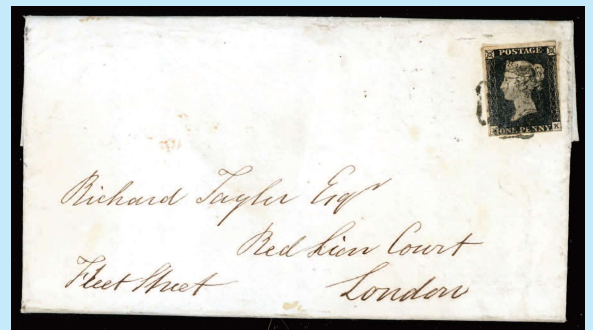 POSTAGE
ONE PENNY
Richard Taylor Esqr
Red Lion Court
Fleet Street
London